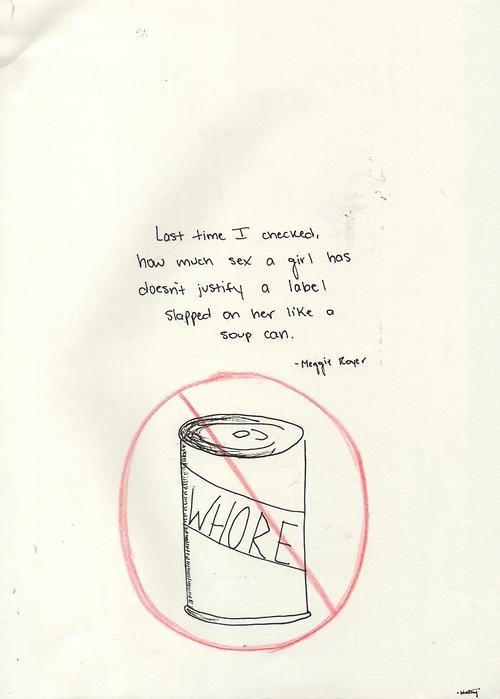 Last time I checked,
how much sex a girl has
doesn't justify a label
slapped on her like a
soup can.
-Meggie Royer
WHORE